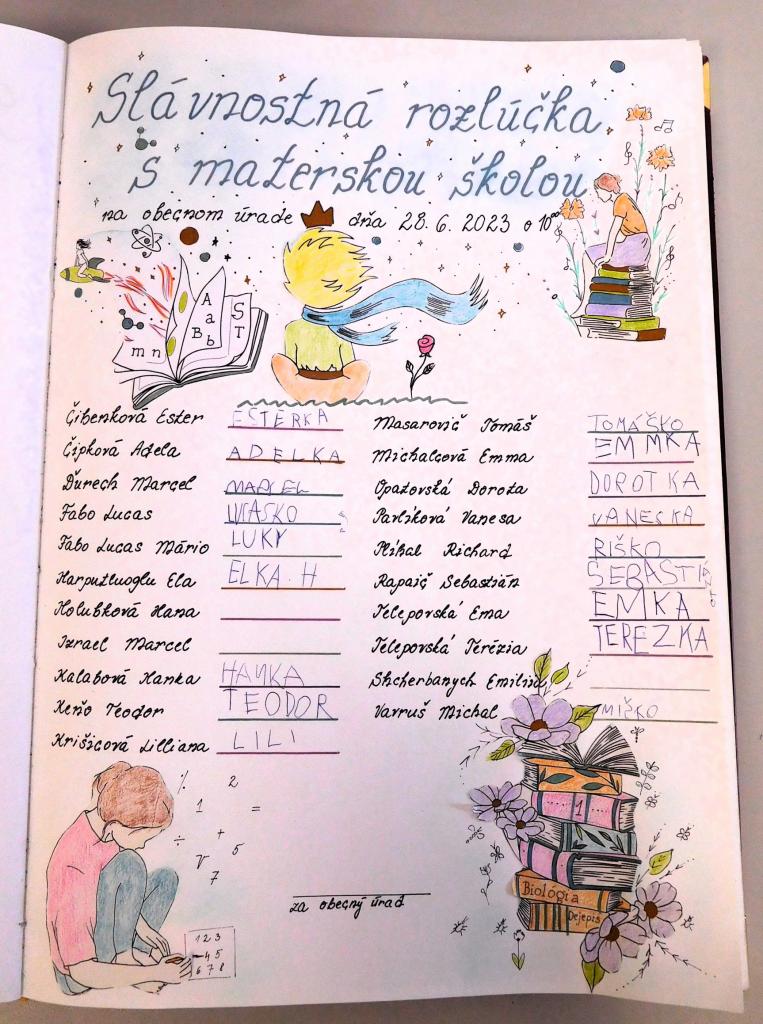 Slávnostná rozlúčka
s materskou školou
na obecnom úrade dňa 28. 6. 2023 o 10⁰⁰
A a B b
S T
m n
Čibenková Ester ESTERKA
Čipková Adela ADELKA
Ďurech Marcel MARCEL
Fabo Lucas
Fabo Lucas Mário LUKY
Harputluoglu Ela ELKA.H
Holubková Hana
Izrael Marcel
Kalabová Hanka HANKA
Keňo Teodor TEODOR
Krišicová Lilliana LILI
Masarovič Tomáš TOMÁŠKO
Michalcová Emma EMMKA
Opatovská Dorota DOROTKA
Pavlíková Vanesa VANESKA
Plíhal Richard RIŠKO
Rapaič Sebastián SEBASTIÁ
Teleposvká Ema EMKA
Teleposvká Terézia TEREZKA
Shcherbanych Emiliia
Varruš Michal MIŠKO
% 2
1 =
÷ + 5
7
1 2 3
4 5
6 7 8
za obecný úrad
1
Biológia
Dejepis